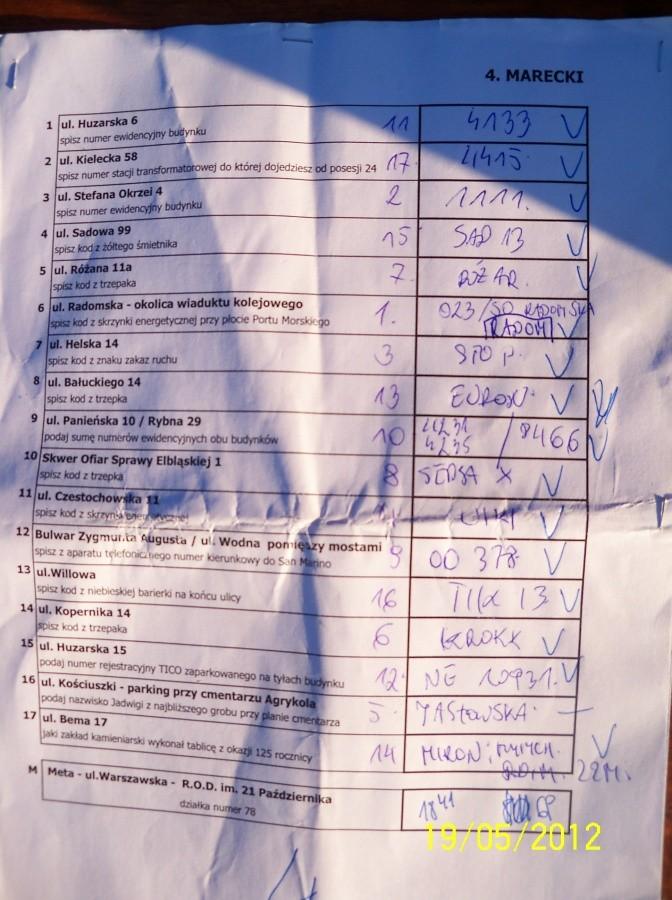 4. MARECKI
1 ul. Huzarska 6 11 4133 V
spisz numer ewidencyjny budynku
2 ul. Kielecka 58 17 4415 V
spisz numer stacji transformatorowej do której dojedziesz od posesji 24
3 ul. Stefana Okrzei 4 2 1111. V
spisz numer ewidencyjny budynku
4 ul. Sadowa 99 15 SAD 13 V
spisz kod z żółtego śmietnika
5 ul. Różana 11a 7 RÓŻAR. V
spisz kod z trzepaka
6 ul. Radomska - okolica wiaduktu kolejowego 1. 023/SO RADOMSKA
spisz kod z skrzynki energetycznej przy płocie Portu Morskiego RADOM V
7 ul. Helska 14 3 STOP. V
spisz kod z znaku zakaz ruchu
8 ul. Bałuckiego 14 13 V
spisz kod z trzepka
9 ul. Panieńska 10 / Rybna 29 10 4231 / 8466 V
podaj sumę numerów ewidencyjnych obu budynków 4235
10 Skwer Ofiar Sprawy Elbląskiej 1 8 X V
spisz kod z trzepka
11 ul. Czestochowska 11 V
spisz kod z skrzynki energetycznej
12 Bulwar Zygmunta Augusta / ul. Wodna pomięszy mostami 9 00 378 V
spisz z aparatu telefonicznego numer kierunkowy do San Marino
13 ul.Willowa 16 13 V
spisz kod z niebieskiej barierki na końcu ulicy
14 ul. Kopernika 14 6 KROKK V
spisz kod z trzepaka
15 ul. Huzarska 15 12 NE 10931. V
podaj numer rejestracyjny TICO zaparkowanego na tyłach budynku
16 ul. Kościuszki - parking przy cmentarzu Agrykola 5. JASŁOWSKA. —
podaj nazwisko Jadwigi z najbliższego grobu przy planie cmentarza
17 ul. Bema 17 14 V
jaki zakład kamieniarski wykonał tablicę z okazji 125 rocznicy 22M.
M Meta - ul.Warszawska - R.O.D. im. 21 Października 18 41
działka numer 78
19/05/2012